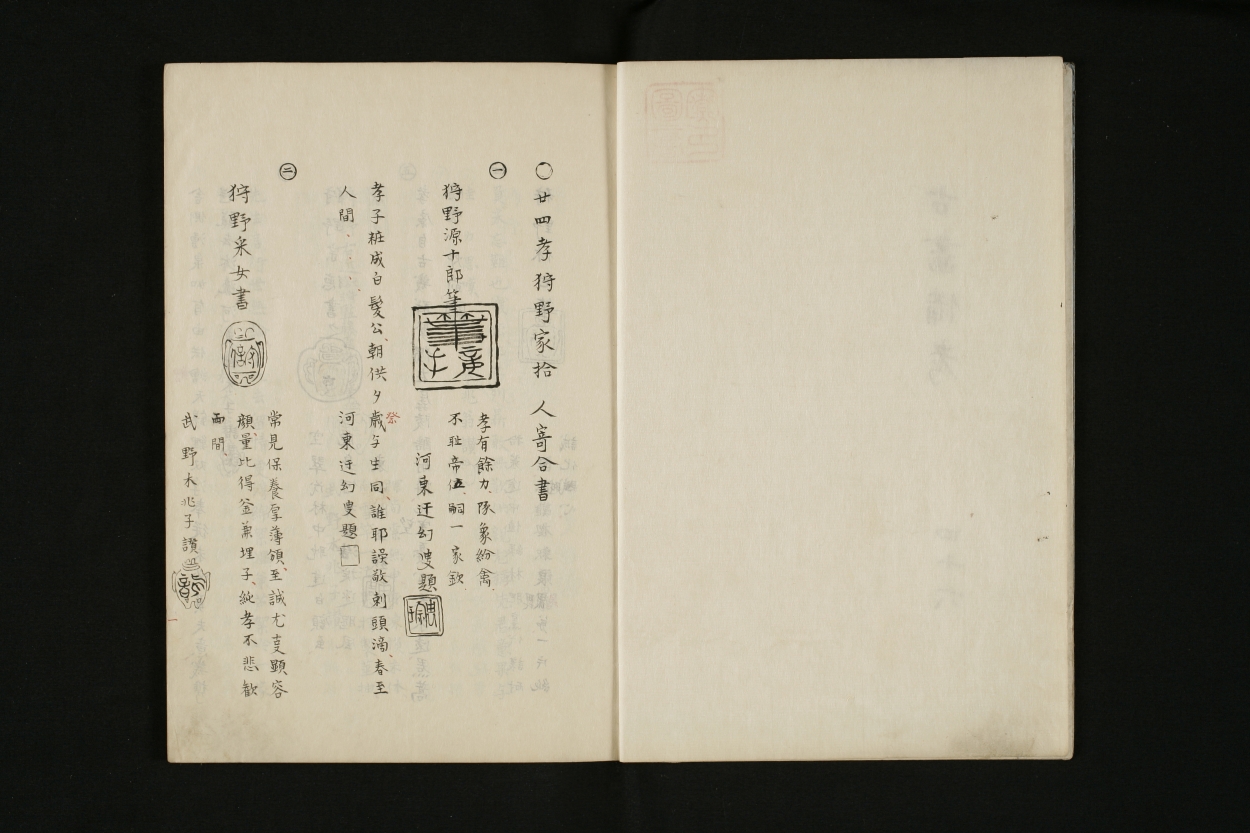 〇廿四孝狩野家拾人寄合書
㊀
狩野源十郎筆
孝有餘力、隊象紛禽、
不耻帝位、嗣一家欽、
河東迂幻叟題
孝子粧成白髪公、朝供夕歳与生同、誰耶謾敬刺頭滴、春至
祭
人間、
河東迂幻叟題
㊁
狩野采女書
常見保養享薄領、至誠尤是顕容
顔、量此得釜兼埋子、純孝不悲歓
両間、
武野木兆子讃